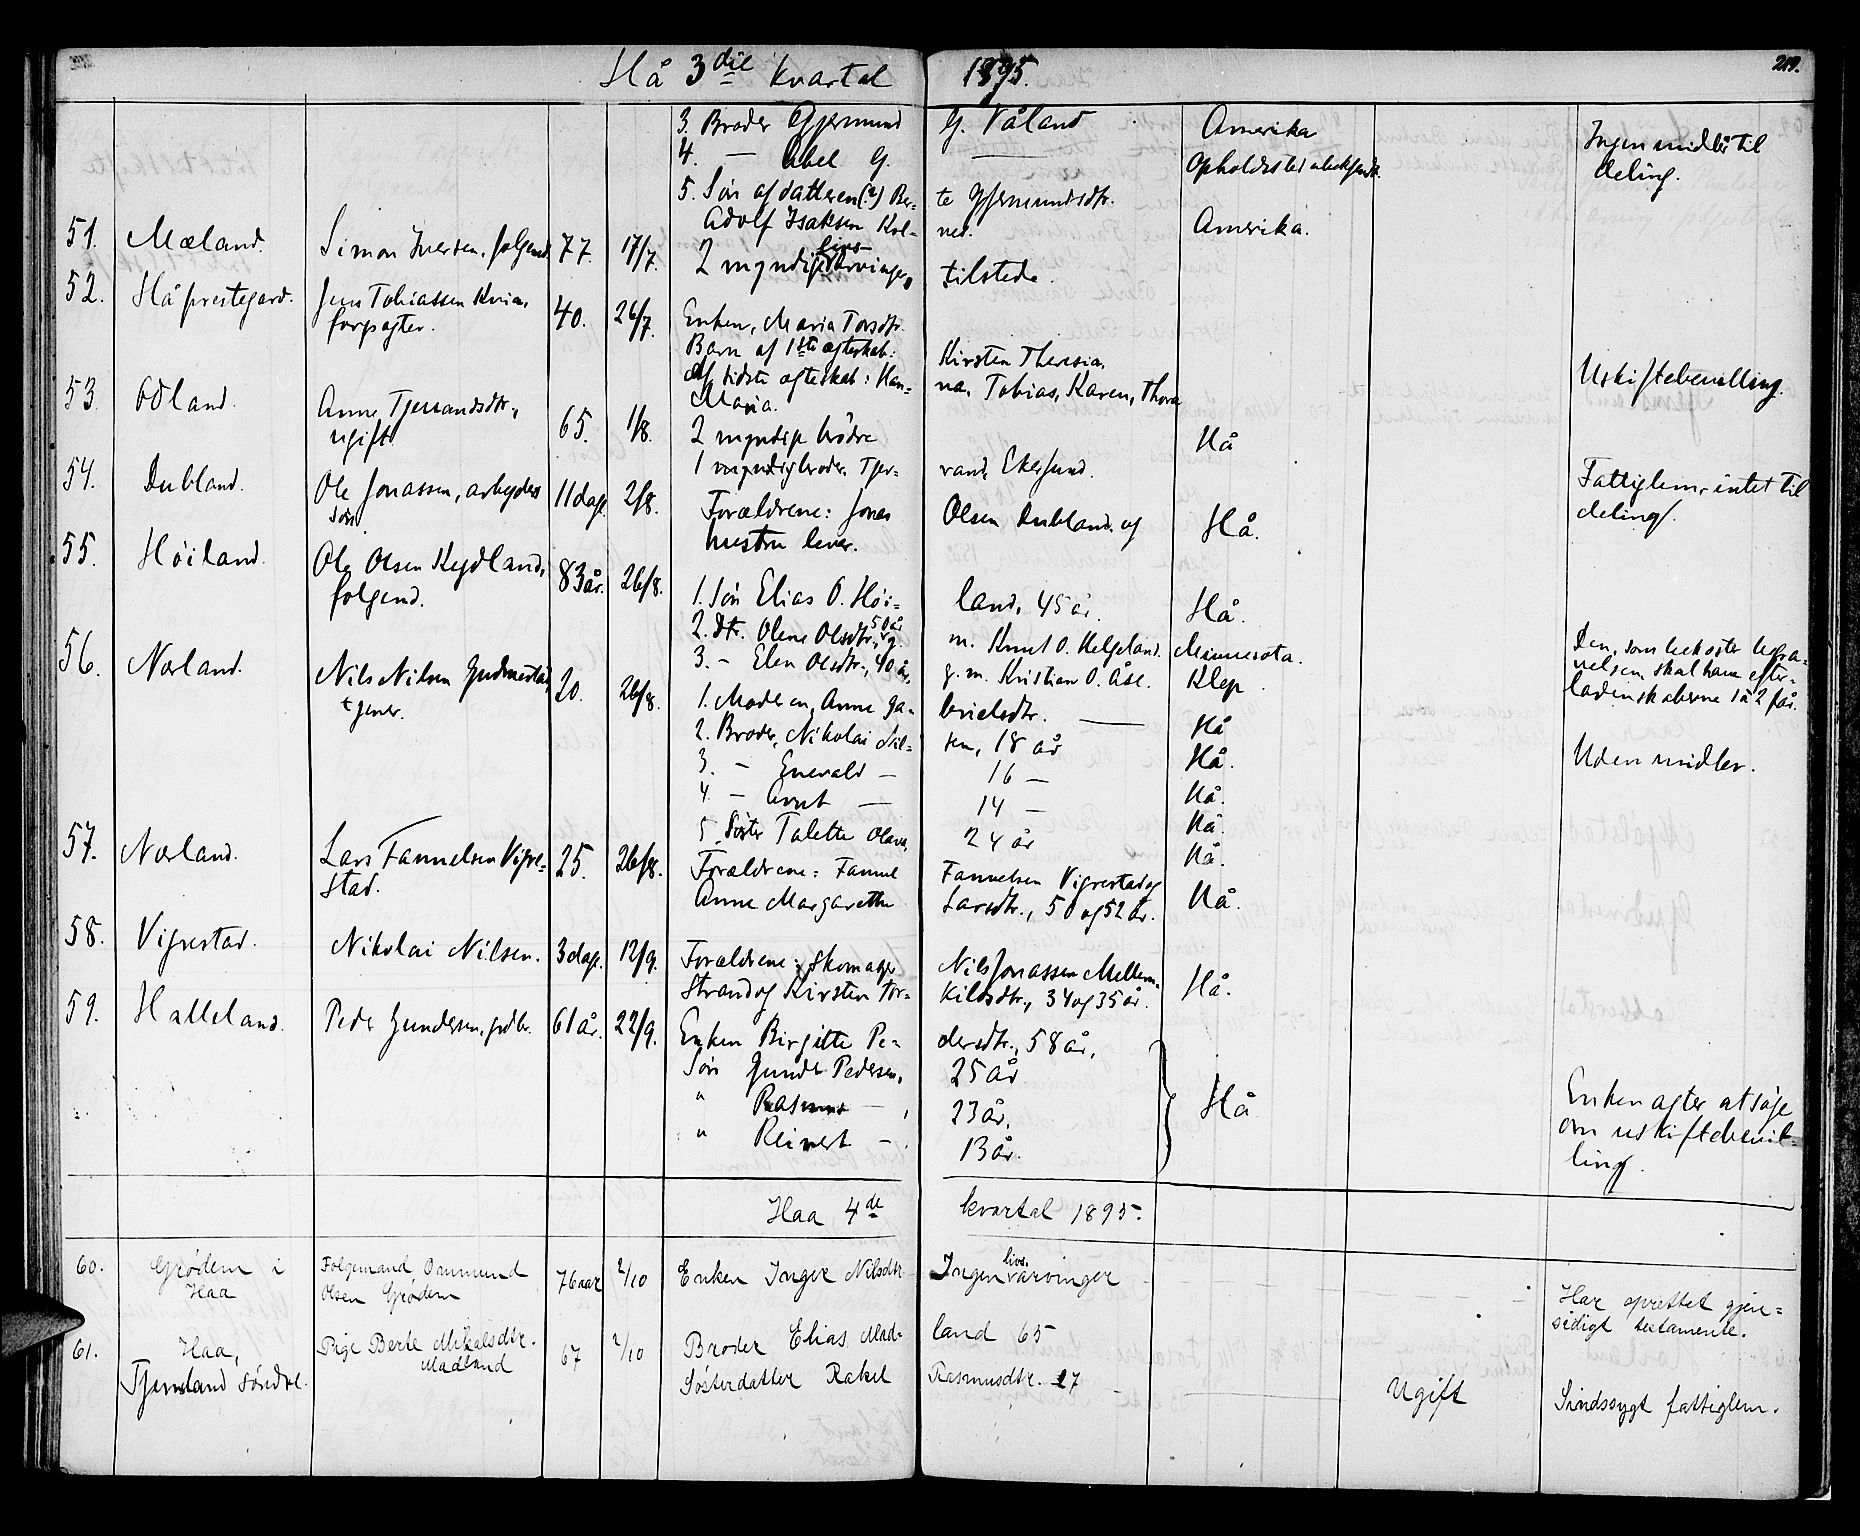 Hå 3die kvartal 1895. 219.
3. Broder Gjermund G. Våland Amerika
4. — Abel G. — Opholdssted ubekjendt. Ingen midler til deling.
5. Søn af datteren (?) Berte Gjermundsdtr.
Adolf Isaksen Kolnes. Amerika.
51. Mæland. Simon Iversen, følgemd. 77. 17/7. 2 myndige livsarvinger, tilstede.
52. Hå prestegard. Jens Tobiassen Kvia, forpagter. 40. 26/7. Enken, Maria Torsdtr.
Børn af 1ste ægteskab: Kirsten Theresia.
Af sidste ægteskab: Hanna, Tobias, Karen, Thora
Maria. Uskiftebevilling.
53. Ødland. Anne Tjerandsdtr., ugift. 65. 1/8. 2 myndige brødre Hå
1 myndig broder, Tjerrand, Ekersund. Fattiglem, intet til deling.
54. Dubland. Ole Jonassen, arbeiders søn. 11 dage. 2/8. Forældrene: Jonas Olsen Dubland og
hustru lever. Hå.
55. Høiland. Ole Olsen Kydland, følgemd. 83 år. 26/8. 1. Søn Elias O. Høiland, 45 år. Hå.
2. Dtr. Olene Olsdtr., 50 år g. m. Knut O. Helgeland. Minnesota.
3. — Elen Olsdtr., 40 år, g. m. Kristian O. Åse. Klep.
Den, som bekoster begravelsen, skal have efterladenskaberne 1 à 2 får.
56. Nærland. Nils Nilsen Gudmestad, tjener. 20. 26/8. 1. Moderen, Anne Gabrielsdtr. — Hå
2. Broder, Nikolai Nilsen, 18 år Hå.
3. — Enevald — 16 — Hå.
4. — Arnt — 14 — Hå.
5. Søster Talette Olava, 24 år Hå.
Uden midler.
57. Nærland. Lars Fannelsen Vigrestad. 25. 26/8. Forældrene: Fannel Fannelsen Vigrestad og
Anne Margarethe Larsdtr., 50 og 52 år. Hå.
58. Vigrestad. Nikolai Nilsen. 3 dage. 12/9. Forældrene: Skomager Nils Jonassen Mellem-
Strand og Kirsten Torkildsdtr., 34 og 35 år. Hå.
59. Halleland. Peder Gundersen, grdbr. 61 år. 22/9. Enken Birgitte Pedersdtr., 58 år.
Søn Gunder Pedersen, 25 år
" Rasmus — , 23 år.
" Reinert — . 13 år.
Hå
Enken agter at søge om uskiftebevilling.
Haa 4de kvartal 1895.
60. Grødem i Haa Følgemand Ommund Olsen Grødem 76 aar 2/10 Enken Inger Nilsdtr Ingen livsarvinger Har oprettet gjensidigt testamente.
61. Haa, Tjemland søndre. Pige Berte Mikalsdtr. Madland 67 2/10 Broder Elias Madland 65
Søsterdatter Rakel Rasmusdtr. 27 Ugift Sindssygt fattiglem.